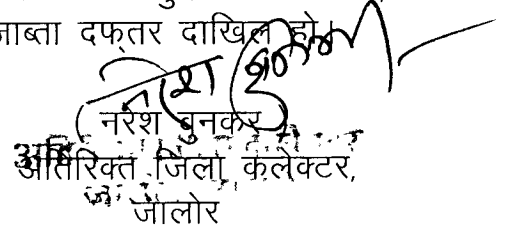 जाब्ता दफ्तर दाखिल हो।
नरेश बुनकर
अतिरिक्त जिला कलेक्टर,
जालोर